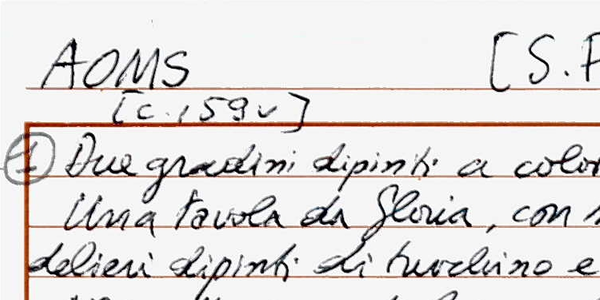 AOMS [S.
[c. 159v]
1 Due gradini dipinti a
Una tavola da Gloria, con
delieri dipinti di turchino e